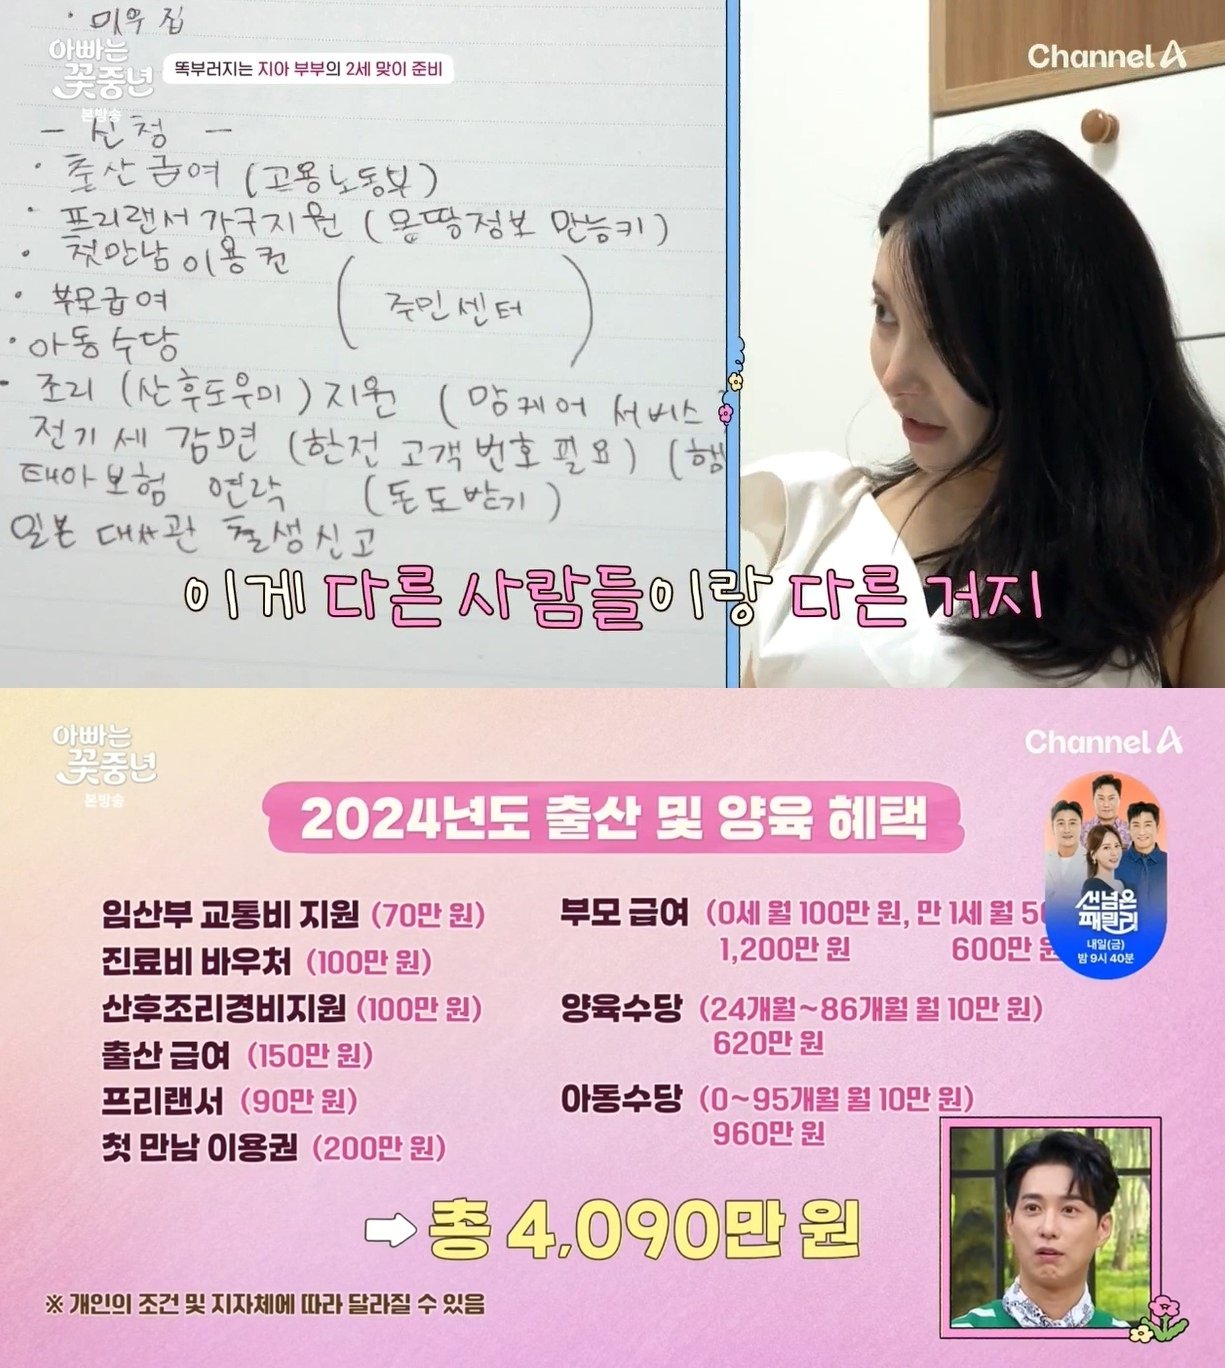 · 미우 집
아빠는
꽃중년
본방송
똑부러지는 지아 부부의 2세 맞이 준비
Channel A
- 신청 -
· 출산급여 (고용노동부)
· 프리랜서가구지원 (몽땅정보 만능키)
· 첫만남이용권
(주민센터)
· 부모급여
· 아동수당
· 조리 (산후도우미) 지원 (맘케어 서비스
전기세 감면 (한전 고객번호 필요) (행
태아보험 연락 (돈도받기)
일본 대사관 출생신고
이게 다른 사람들이랑 다른 거지
아빠는
꽃중년
본방송
Channel A
2024년도 출산 및 양육 혜택
신넘은
패밀리
내일(금)
밤 9시 40분
임산부 교통비 지원 (70만 원)
진료비 바우처 (100만 원)
산후조리경비지원 (100만 원)
출산 급여 (150만 원)
프리랜서 (90만 원)
첫 만남 이용권 (200만 원)
부모 급여 (0세 월 100만 원, 만 1세 월 5
1,200만 원 600만 원
양육수당 (24개월~86개월 월 10만 원)
620만 원
아동수당 (0~95개월 월 10만 원)
960만 원
➡ 총 4,090만 원
※ 개인의 조건 및 지자체에 따라 달라질 수 있음